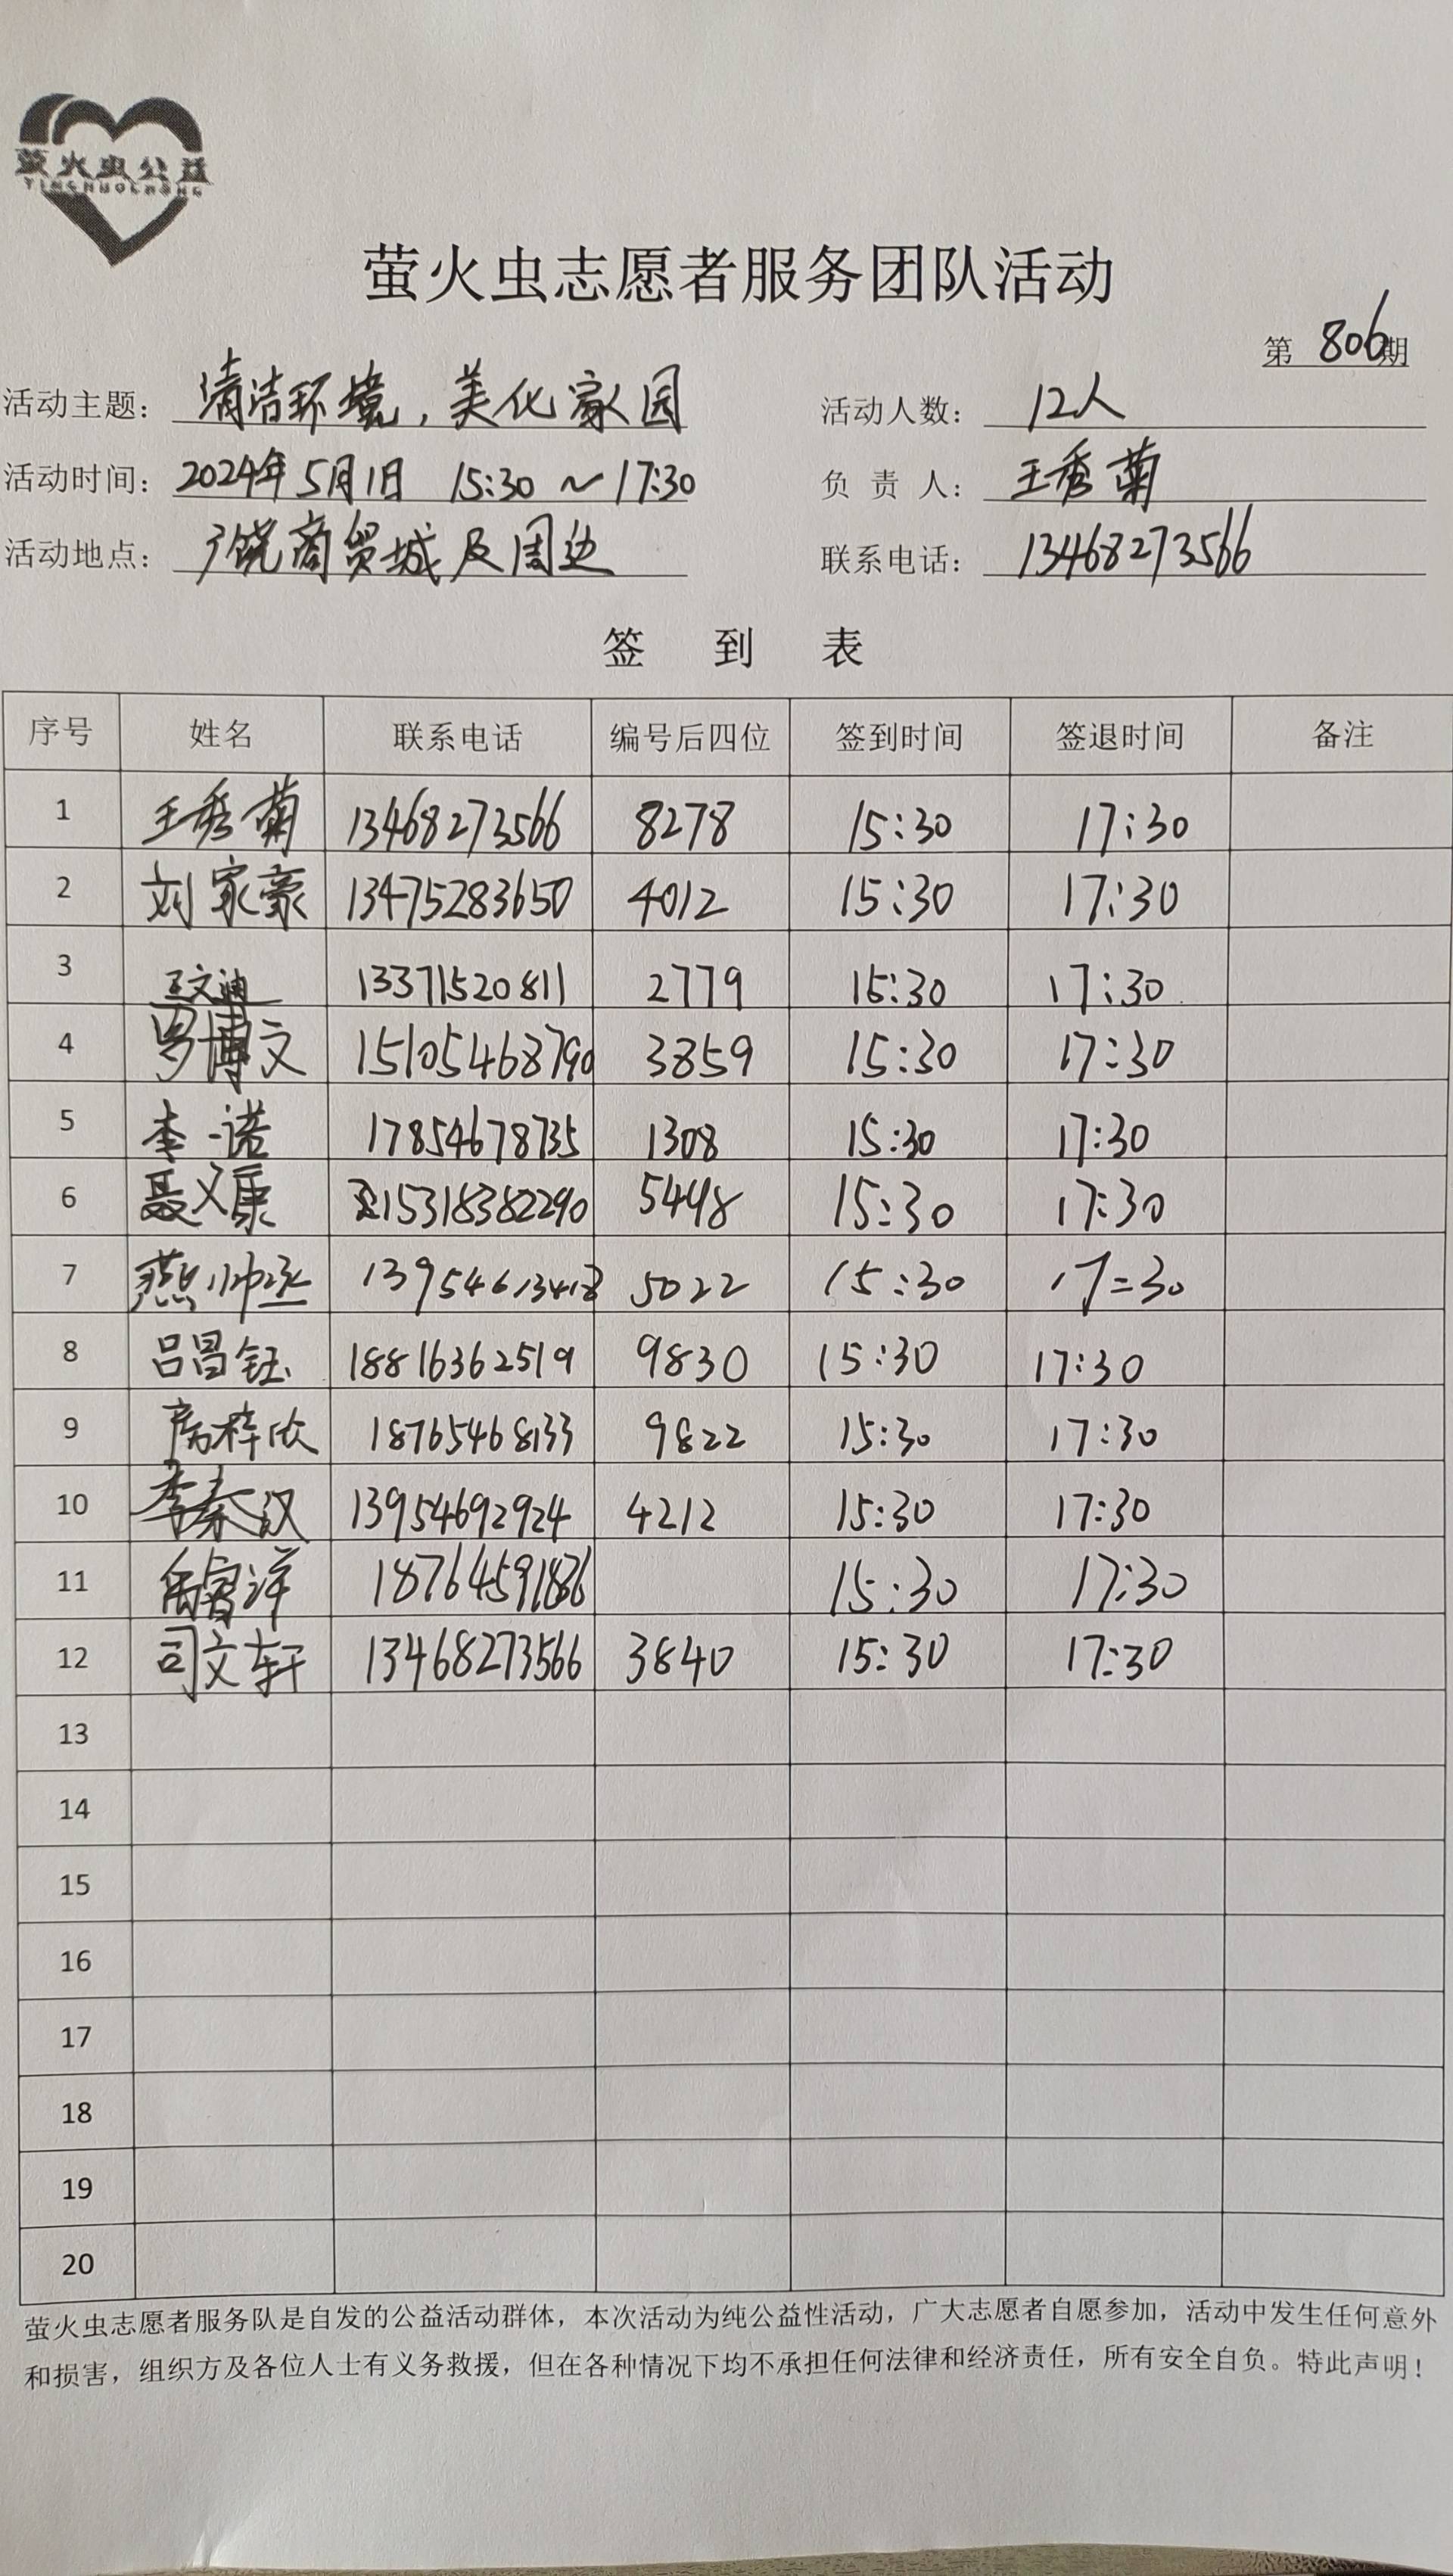 萤火虫公益
YINGHUOCHONG
萤火虫志愿者服务团队活动
第 806期
活动主题： 清洁环境，美化家园 活动人数： 12人
活动时间： 2024年5月1日 15:30 ~ 17:30 负 责 人： 王秀菊
活动地点： 广饶商贸城及周边 联系电话： 13468273566
签 到 表
序号 姓名 联系电话 编号后四位 签到时间 签退时间 备注
1 王秀菊 13468273566 8278 15:30 17:30
2 刘家豪 13475283650 4012 15:30 17:30
3 王文迪 13371520811 2779 15:30 17:30
4 罗博文 15105468790 3859 15:30 17:30
5 李一诺 17854678735 1308 15:30 17:30
6 聂义康 15318382290 5448 15:30 17:30
7 燕帅丞 5022 15:30 17:30
8 吕昌钰 18816362519 9830 15:30 17:30
9 高梓欣 18765468133 9822 15:30 17:30
10 李秦汉 13954692924 4212 15:30 17:30
11 15:30 17:30
12 司文轩 13468273566 3840 15:30 17:30
13
14
15
16
17
18
19
20
萤火虫志愿者服务队是自发的公益活动群体，本次活动为纯公益性活动，广大志愿者自愿参加，活动中发生任何意外
和损害，组织方及各位人士有义务救援，但在各种情况下均不承担任何法律和经济责任，所有安全自负。特此声明！